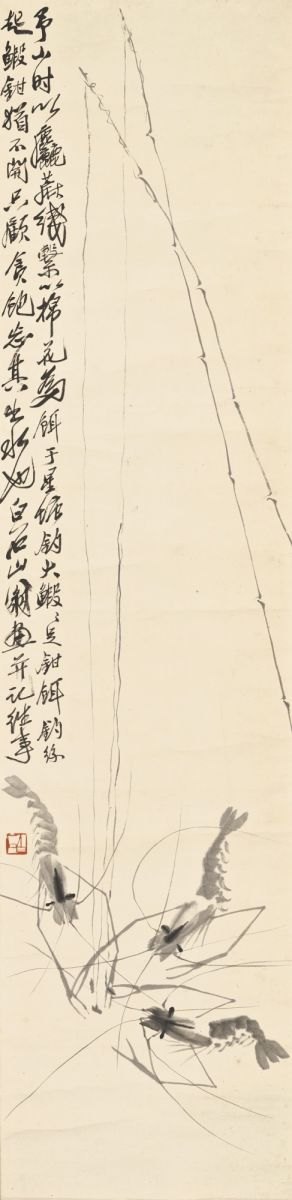 予少时以麤蔴线繫以棉花为饵于星塘钓大鰕鰕足钳饵钓丝
起鰕钳犹不开只顾贪饱忘其出水也白石山翁画并记往事